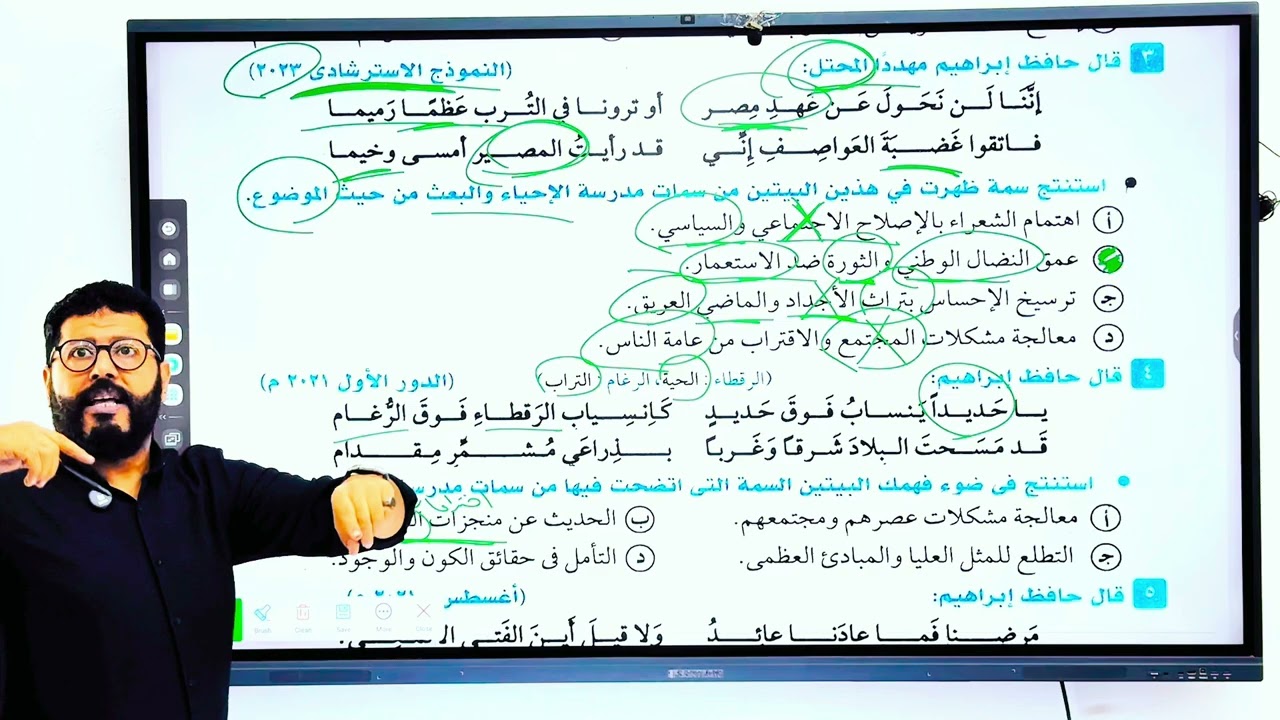 ٣ قال حافظ إبراهيم مهددًا المحتل: (النموذج الاسترشادى ٢٠٢٣)
إنَّنَا لَـن نَحَـولَ عَـن عَهـدِ مِصـر أو ترونـا في التُـرب عَظمًـا رَميمـا
فـاتقوا غَضبَـةَ العَواصِـفِ إنِّـي قـد رأيـتُ المصـير أمسـى وخيمـا
استنتج سمة ظهرت في هذين البيتين من سمات مدرسة الإحياء والبعث من حيث الموضوع.
أ اهتمام الشعراء بالإصلاح الاجتماعي والسياسي.
عمق النضال الوطني والثورة ضد الاستعمار.
ج ترسيخ الإحساس بتراث الأجداد والماضي العريق.
د معالجة مشكلات المجتمع والاقتراب من عامة الناس.
٤ قال حافظ إبراهيم: (الرقطاء : الحية، الرغام : التراب) (الدور الأول ٢٠٢١ م)
يـا حَديـداً يَنسـابُ فَـوقَ حَديـدٍ كَاِنسِـيابِ الرَقطـاءِ فَـوقَ الرُّغـام
قَـد مَسَـحتَ البِـلادَ شَـرقاً وَغَربـاً بِـذِراعَي مُشـمِّرٍ مِقـدام
استنتج فى ضوء فهمك البيتين السمة التى اتضحت فيها من سمات
أ معالجة مشكلات عصرهم ومجتمعهم. ب الحديث عن منجزات
ج التطلع للمثل العليا والمبادئ العظمى. د التأمل فى حقائق الكون والوجود.
٥ قال حافظ إبراهيم: (أغسطس
مَرضـنا فَمـا عادَنـا عائِـدُ وَلا قيـلَ أَيـنَ الفَتـى
Brush Clear Save More Close